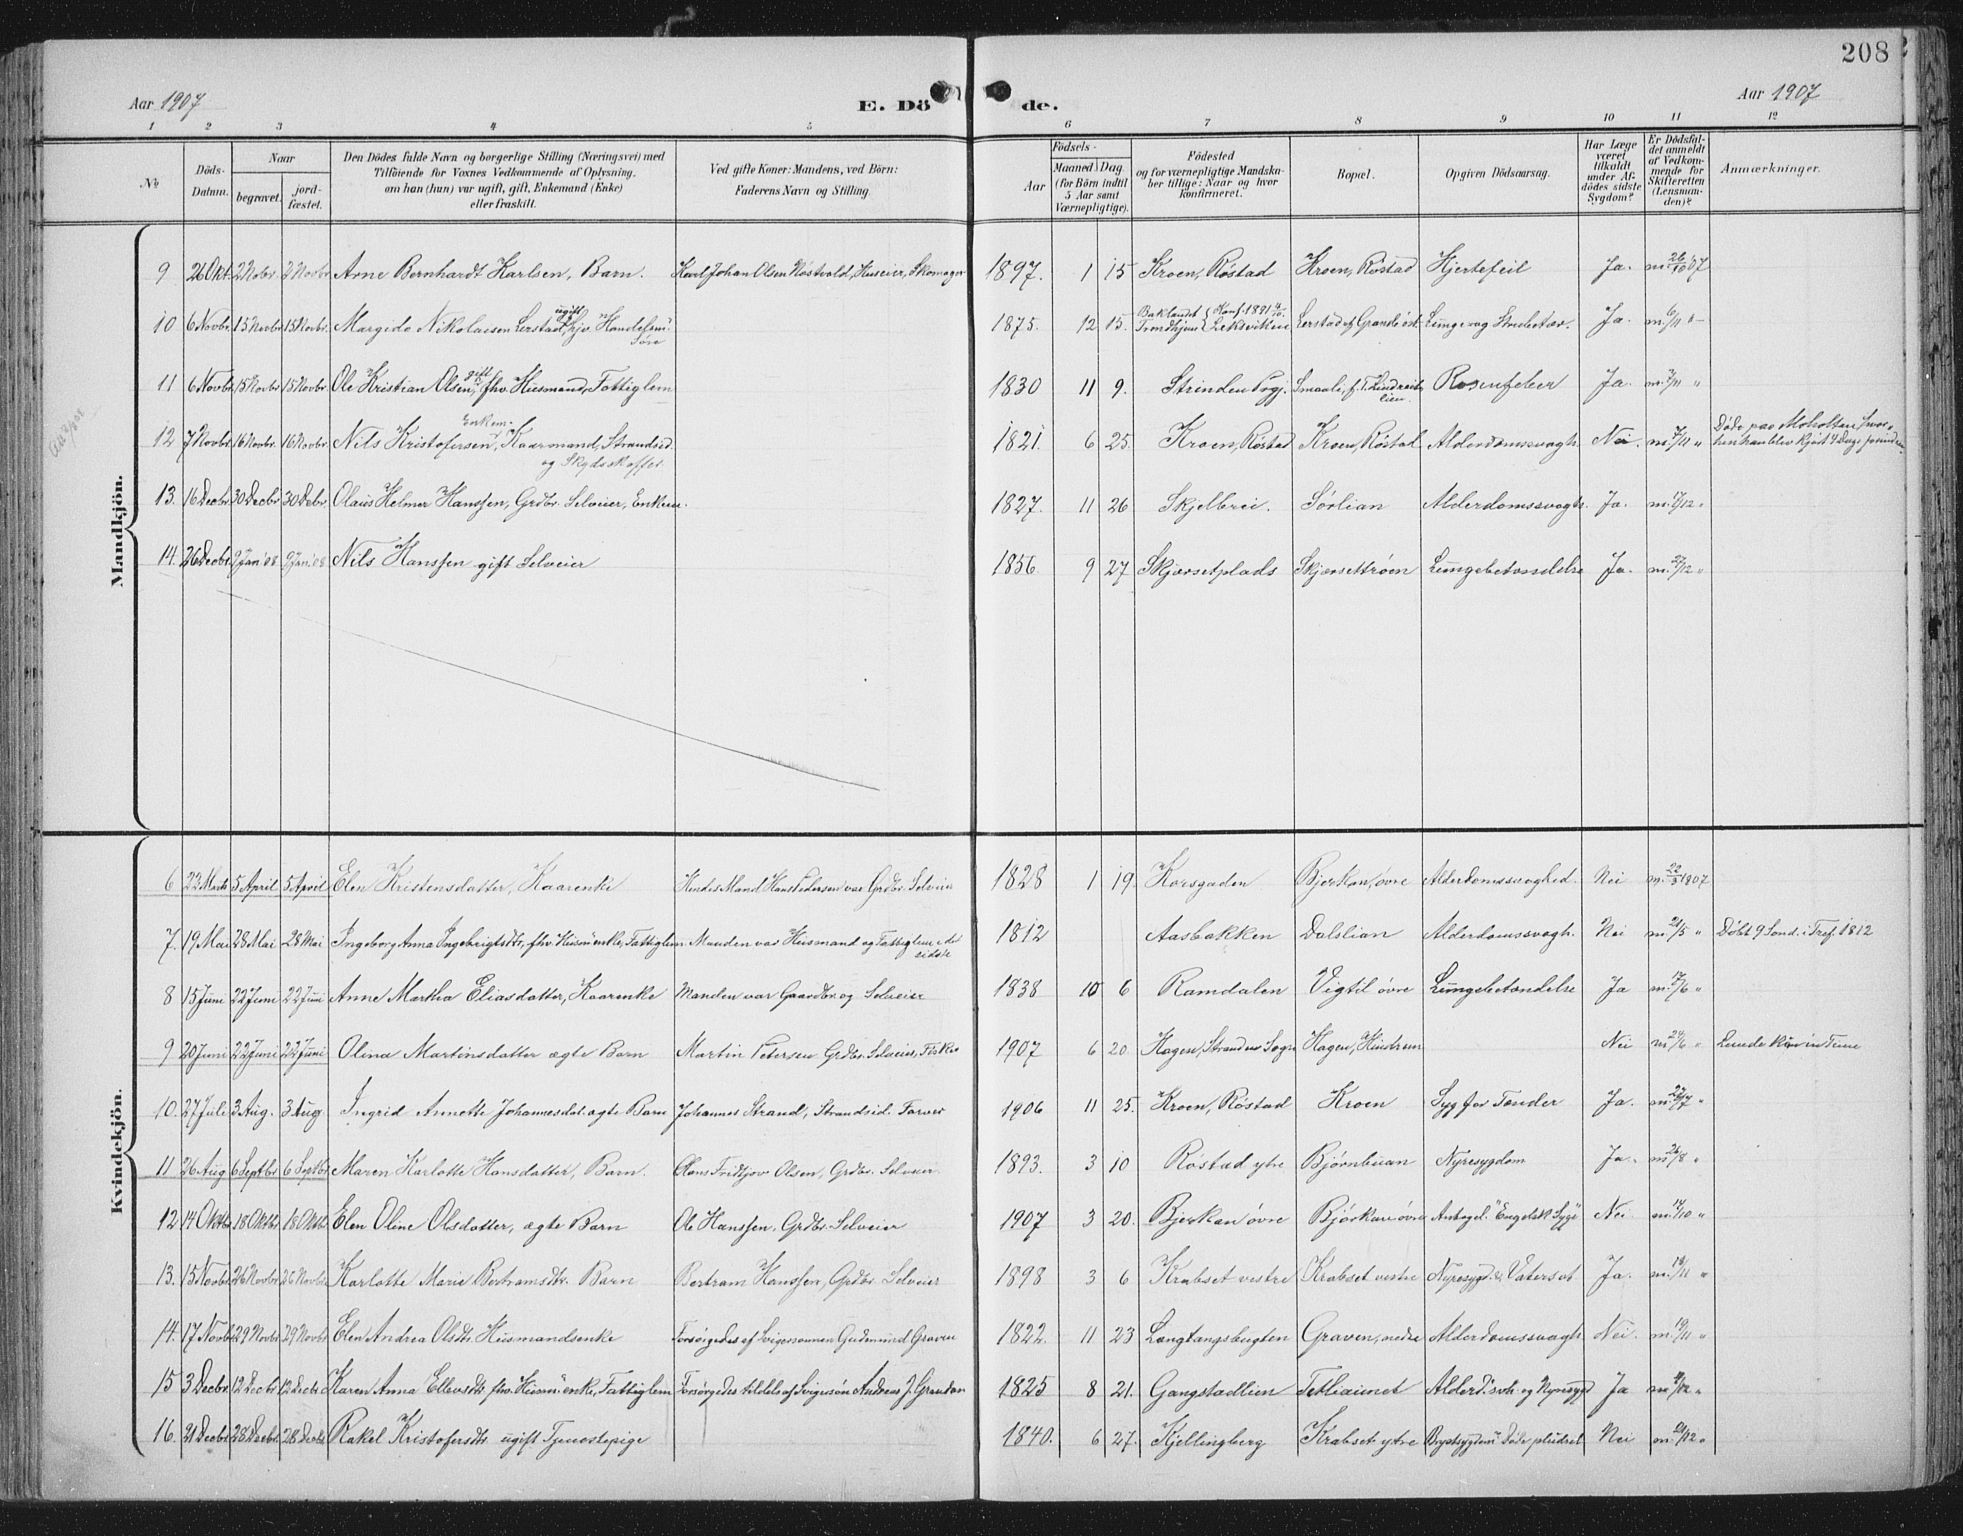 208
Aar 1907
E. Dö de.
Aar 1907
1 2 3 4 5 6 7 8 9 10 11 12
No
Döds-Datum.
Naar
begravet.
jordfæstet.
Den Dödes fulde Navn og borgerlige Stilling (Næringsvei) med
Tilföiende for Voxnes Vedkommende af Oplysning.
om han (hun) var ugift, gift, Enkemand (Enke)
eller fraskilt.
Ved gifte Koner: Mandens, ved Börn:
Faderens Navn og Stilling.
Födsels-
Aar
Maaned Dag
(for Börn indtil
5 Aar samt
Værnepligtige).
Födested
og for værnepligtige Mandskaber tillige: Naar og hvor
konfirmeret.
Bopæl.
Opgiven Dödsaarsag.
Har Læge
været
tilkaldt
under Afdödes sidste
Sygdom?
Er Dödsfaldet anmeldt
af Vedkommende for
Skifteretten
(Lensmanden)?
Anmærkninger.
Mandkjön.
9 26 Okt. 2 Nobr. 2 Novbr. Arne Bernhardt Karlsen, Barn. Karl Johan Olsen Röstvold, Huseier, Skomager 1897. 1 15 Kroen, Röstad Kroen, Röstad Hjertefeil Ja. m. 26/10 07
10 6 Novbr. 15 Novbr. 15 Novbr. Margido Nikolaisen Lerstad, ugift, hjv. Handelsm. Söre 1875. 12 15. Baklandet Trondhjem Konf. 1891 Leksviken Lerstad af Grande öst. Ja. m. 6/11 "
11 6 Novbr. 15 Novbr. 15 Novbr. Ole Kristian Olsen, gift, fhv. Husmand, Fattiglem 1830 11 9. Strinden Prgj. Ja. m. 7/11 "
12 7 Novbr. 16 Novbr. 16 Novbr. Nils Kristofersen, Enkem. Kaarmand, Strandsid. og Skydsskaffer. 1821. 6 25. Kroen, Röstad Kroen, Röstad Alderdomssvagh. Nei. m. 7/11 " Döde paa Moholtan, hvorhen han blev kjört
13. 16 Decbr. 30 Decbr. 30 Debr. Olaus Helmer Hanssen, Grdbr. Selveier, Enkem. 1827. 11 26 Skjelbrei. Sörlian Alderdomssvagh. Ja. m. 17/12 "
14. 26 Decbr. 9 Jan '08 9 Jan '08 Nils Hanssen gift Selveier 1856 9 27 Skjærsetplads Skjærsettröen Lungebetændelse Ja. m. 27/12 "
Kvindekjön.
6 22 Marts 5 April 5 April Elen Kristensdatter, Kaarenke Hendes Mand Hans Pedersen var Grdbr. Selveier 1828 1 19. Korsgaden Bjerkan, övre Alderdomssvaghed. Nei m. 22/3 1907
7. 19 Mai 28 Mai 28 Mai Ingeborg Anna Ingebrigtsdtr., fhv. Husm. enke, Fattiglem Manden var Husmand og Fattiglem i det sidste 1812 Aasbakken Dalslian Alderdomssvagh. Nei m. 21/5 " Döbt 9 Sönd. i Tref. 1812
8 15 Juni 22 Juni 22 Juni Anne Martha Eliasdatter, Kaarenke Manden var Gaardbr. og Selveier 1838 10 6 Ramdalen Vigtil övre Lungebetændelse Ja m. 17/6 "
9 20 Juni 22 Juni 22 Juni Olina Martinsdatter ægte Barn Martin Petersen Grdbr. Selveier, Fisker 1907 6 20. Hagen, Strandens Sogn Hagen, Hindrem Nei m. 24/6 " Levede kun in Time
10. 27 Juli 3 Aug. 3 Aug. Ingrid Annette Johannesdat. ægte Barn Johannes Strand, Strandsid. Farver 1906 11 25. Kroen, Röstad Kroen Syg for Tænder Ja. m. 27/7 "
11. 26 Aug 6 Septbr 6 Septbr Maren Karlotte Hansdatter, Barn. Hans Fridtjov Olsen, Grdbr. Selveier. 1893. 3 10 Röstad ytre Björnbuan Nyresygdom Ja. m. 26/8 "
12 14 Oktbr. 18 Oktbr. 18 Oktbr. Elen Oline Olsdatter, ægte Barn Ole Hanssen, Grdbr. Selveier 1907 3 20. Bjerkan övre Björkan övre Antagel. "Engelsk Syge" Nei m. 14/10 "
13. 15 Novbr. 26 Novbr. 26 Novbr. Karlotte Marie Bertramsdtr. Barn Bertram Hanssen, Grdbr. Selveier 1898 3 6 Krabset vestre Krabset vestre Nyresygd. & Vatersot Ja. m. 19/11 "
14. 17 Novbr. 29 Novbr. 29 Novbr. Elen Andrea Olsdtr. Husmandsenke Forsörgedes af Svigersönnen Gudmund Graven 1822. 11 23 Langtangsbugten Graven, nedre Alderdomssvagh. Nei. m. 19/11 "
15 3 Decbr. 12 Decbr 12 Decbr Karen Anna Ellevsdtr. fhv. Husm. enke, Fattiglem Forsörgedes tildels af Svigersön Andreas J. Grandan 1825 8 21. Gangstadlien Tetliaunet Alderd.svh. og Nyresygd Ja m. 4/12 "
16. 21 Decbr. 28 Decbr. 28 Decbr Rakel Kristofersdtr. ugift Tjenestepige 1840. 6 27. Kjellingberg Krabset ytre Brystsygdom? Döde pludsel. Nei m. /12 "